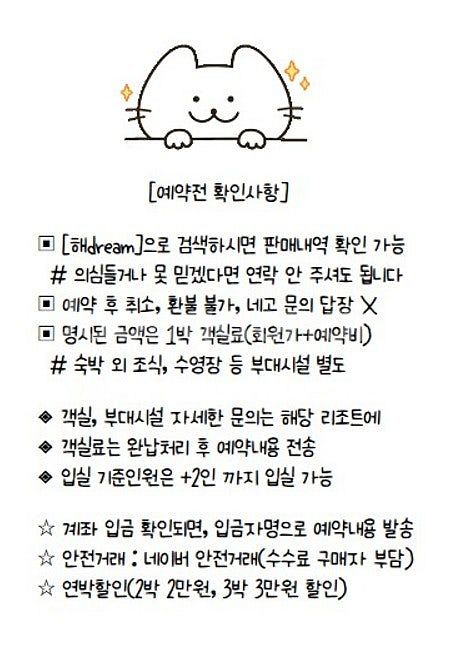 [예약전 확인사항]
▣ [해dream]으로 검색하시면 판매내역 확인 가능
# 의심들거나 못 믿겠다면 연락 안 주셔도 됩니다
▣ 예약 후 취소, 환불 불가, 네고 문의 답장 X
▣ 명시된 금액은 1박 객실료(회원가+예약비)
# 숙박 외 조식, 수영장 등 부대시설 별도
◈ 객실, 부대시설 자세한 문의는 해당 리조트에
◈ 객실료는 완납처리 후 예약내용 전송
◈ 입실 기준인원은 +2인 까지 입실 가능
☆ 계좌 입금 확인되면, 입금자명으로 예약내용 발송
☆ 안전거래 : 네이버 안전거래(수수료 구매자 부담)
☆ 연박할인(2박 2만원, 3박 3만원 할인)